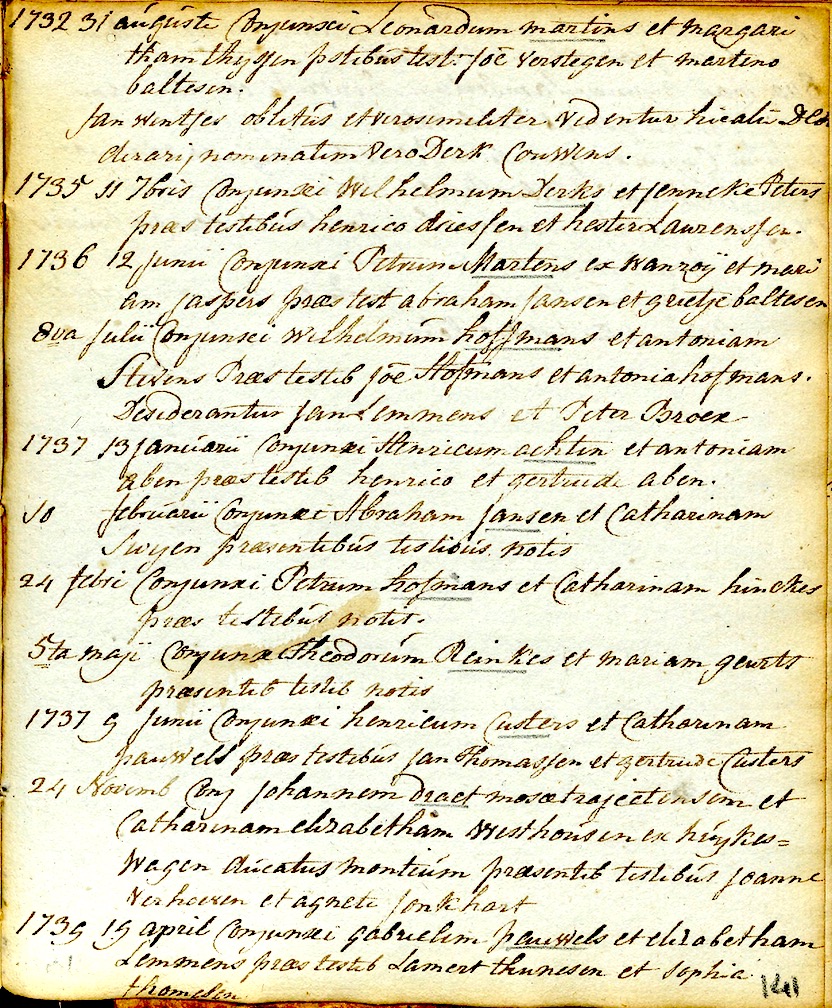 1732 31 auguste Conjunxi Leonardum martins et margari
tham thyssen pstibus test: Joe verstegen et martino
baltesen.
Jan wintjes oblitus et verosimiliter videntur hi calu
nominatim vero Derk Couwens.
1735 11 7bris Conjunxi Wilhelmum Derks et Jenneke Peters
præs testibus henrico driessen et hester Laurenssen.
1736 12 Junii Conjunxi Petrum Martens ex Wanroÿ et mari
am jaspers præs test abraham Jansen et grietje baltesen
8va Julii Conjunxi Wilhelmum hoffmans et antoniam
Stevens Præs testib Joe Hofmans et antonia hofmans.
Desiderantur Jan Lemmens et Peter Broex
1737 13 januarii Conjunxi Henricum achten et antoniam
aben præs testib henrico et gertrude aben.
10 februarii Conjunxi Abraham Jansen et Catharinam
præsentibus testibus notis
24 febri Conjunxi Petrum hofmans et Catharinam hinckes
præs testibus notis.
5ta maji Conjunx Theodorum Reinkes et mariam geurts
præsentib testib notis
1737 9 Junii Conjunxi henricum Custers et Catharinam
pauwels præs testibus Jan Thomassen et gertrude Custers
24 Novemb Conj Johannem dract mosæ trajectensem et
Catharinam elizabetham Westhousen ex huÿkes=
wagen ducatus montium præsentib testibus Joanne
Verhoeven et agnete Jonkhart
1739 19 april Conjunxi gabrielem pauwels et elizabetham
Lemmens præs testib Lamert thunesen et sophia
thomesen
141